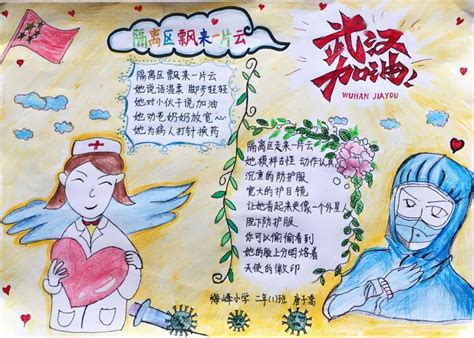 隔离区飘来一片云
武汉
加油!
WUHAN JIAYOU
隔离区飘来一片云
她说话温柔 脚步轻轻
她对小伙子说加油
她劝老奶奶放宽心
她为病人打针换药
隔离区走来一片云
她模样古怪 动作认真
沉重的防护服
宽大的护目镜
让她看起来更像一个外星人
脱下防护服
你可以偷偷看到
她的脸上分明烙着
天使的徽印
小学 二年(1)班 唐子